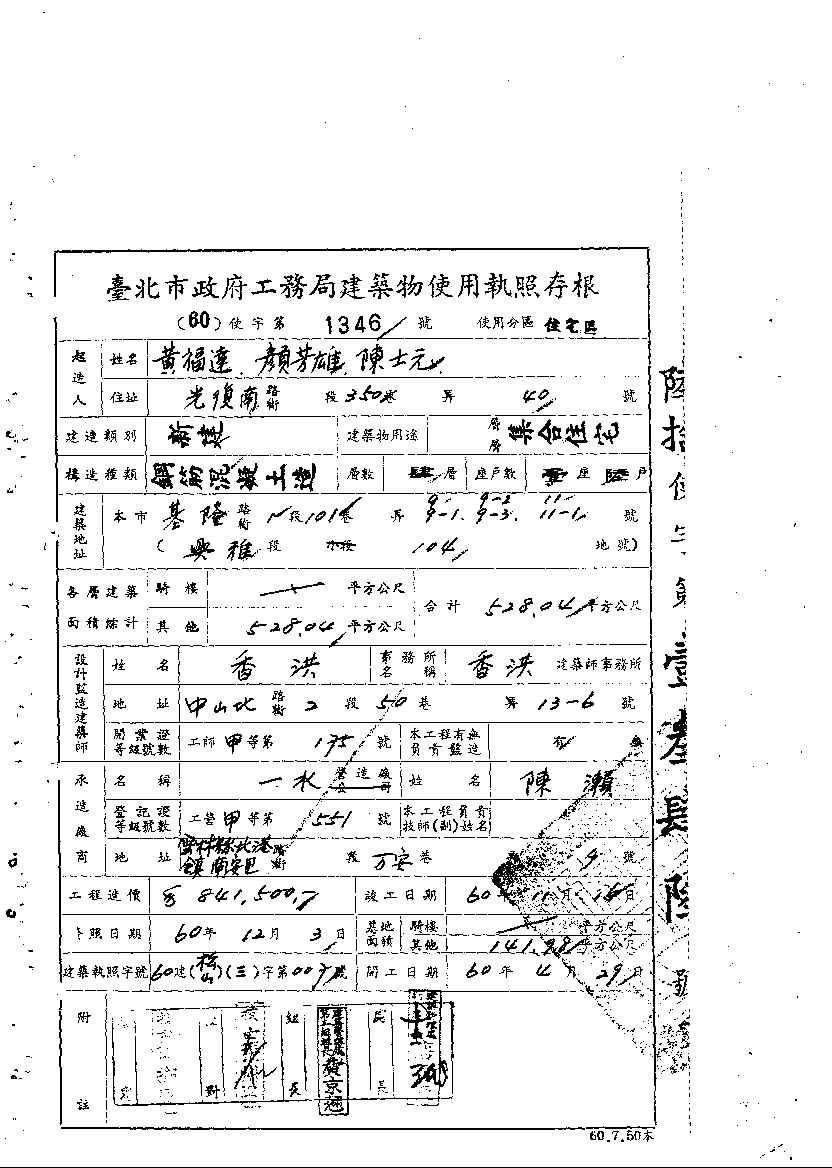 臺北市政府工務局建築物使用執照存根
(60)使字第 1346 號 使用分區 住宅區
起造人 姓名 黃福達、顏芳雄、陳士元
住址 光復南路街 段 350巷 弄 40 號
建造類別 新建 建築物用途 層層 集合住宅
構造種類 鋼筋混凝土造 層數 肆層 座戶數 壹座 陸戶
建築地址 本市 基隆路街 段 101巷 弄 9. 9-2. 11. 9-1. 9-3. 11-1 號
(興雅段 小段 104 地號)
各層建築面積綜計 騎樓 平方公尺 合計 528.04 平方公尺
其他 528.04 平方公尺
設計監造建築師 姓名 香洪 事務所名稱 香洪 建築師事務所
地址 中山北路街 2 段 50 巷 弄 13-6 號
開業證等級號數 工師甲等第 175 號 本工程有無負責監造 有 無
承造廠商 名稱 一水 營造廠公司 姓名 陳瀨
登記證等級號數 工營甲等第 551 號 本工程負責技師(副)姓名
地址 雲林縣北港鎮南安里 路街 段 万安巷 9 號
工程造價 841,500 竣工日期 60年 11月 16日
日期 60年 12月 3日 基地面積 騎樓 平方公尺
其他 141.98 平方公尺
建築執照字號 60建(松山)(三)字第 007號 開工日期 60年 4月 29日
附註 對 組長
長
60.7.50本
陸拾使字第壹叁肆陸號